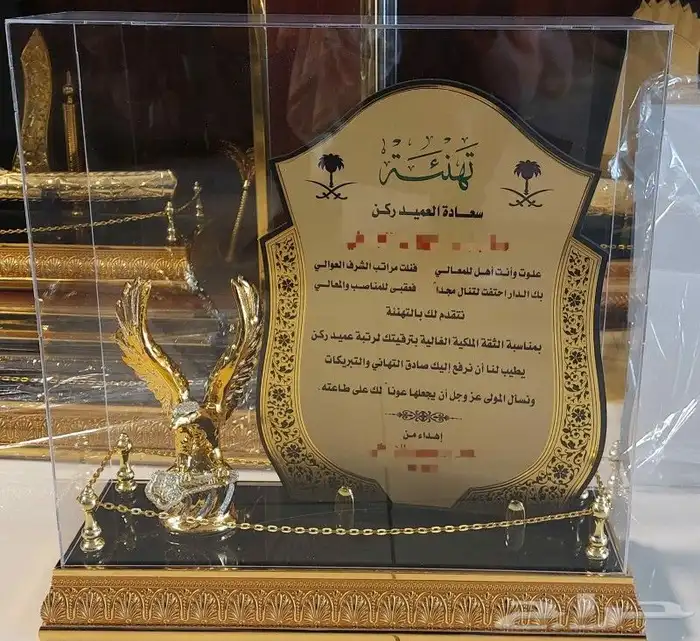 تهنئة
سعادة العميد ركن
علوت وأنت أهل للمعالي فنلت مراتب الشرف العوالي
بك الدار احتفت لتنال مجداً فعقبى للمناصب والمعالي
نتقدم لك بالتهنئة
بمناسبة الثقة الملكية الغالية بترقيتك لرتبة عميد ركن
يطيب لنا أن نرفع إليك صادق التهاني والتبريكات
ونسأل المولى عز وجل أن يجعلها عوناً لك على طاعته.
إهداء من
حراج